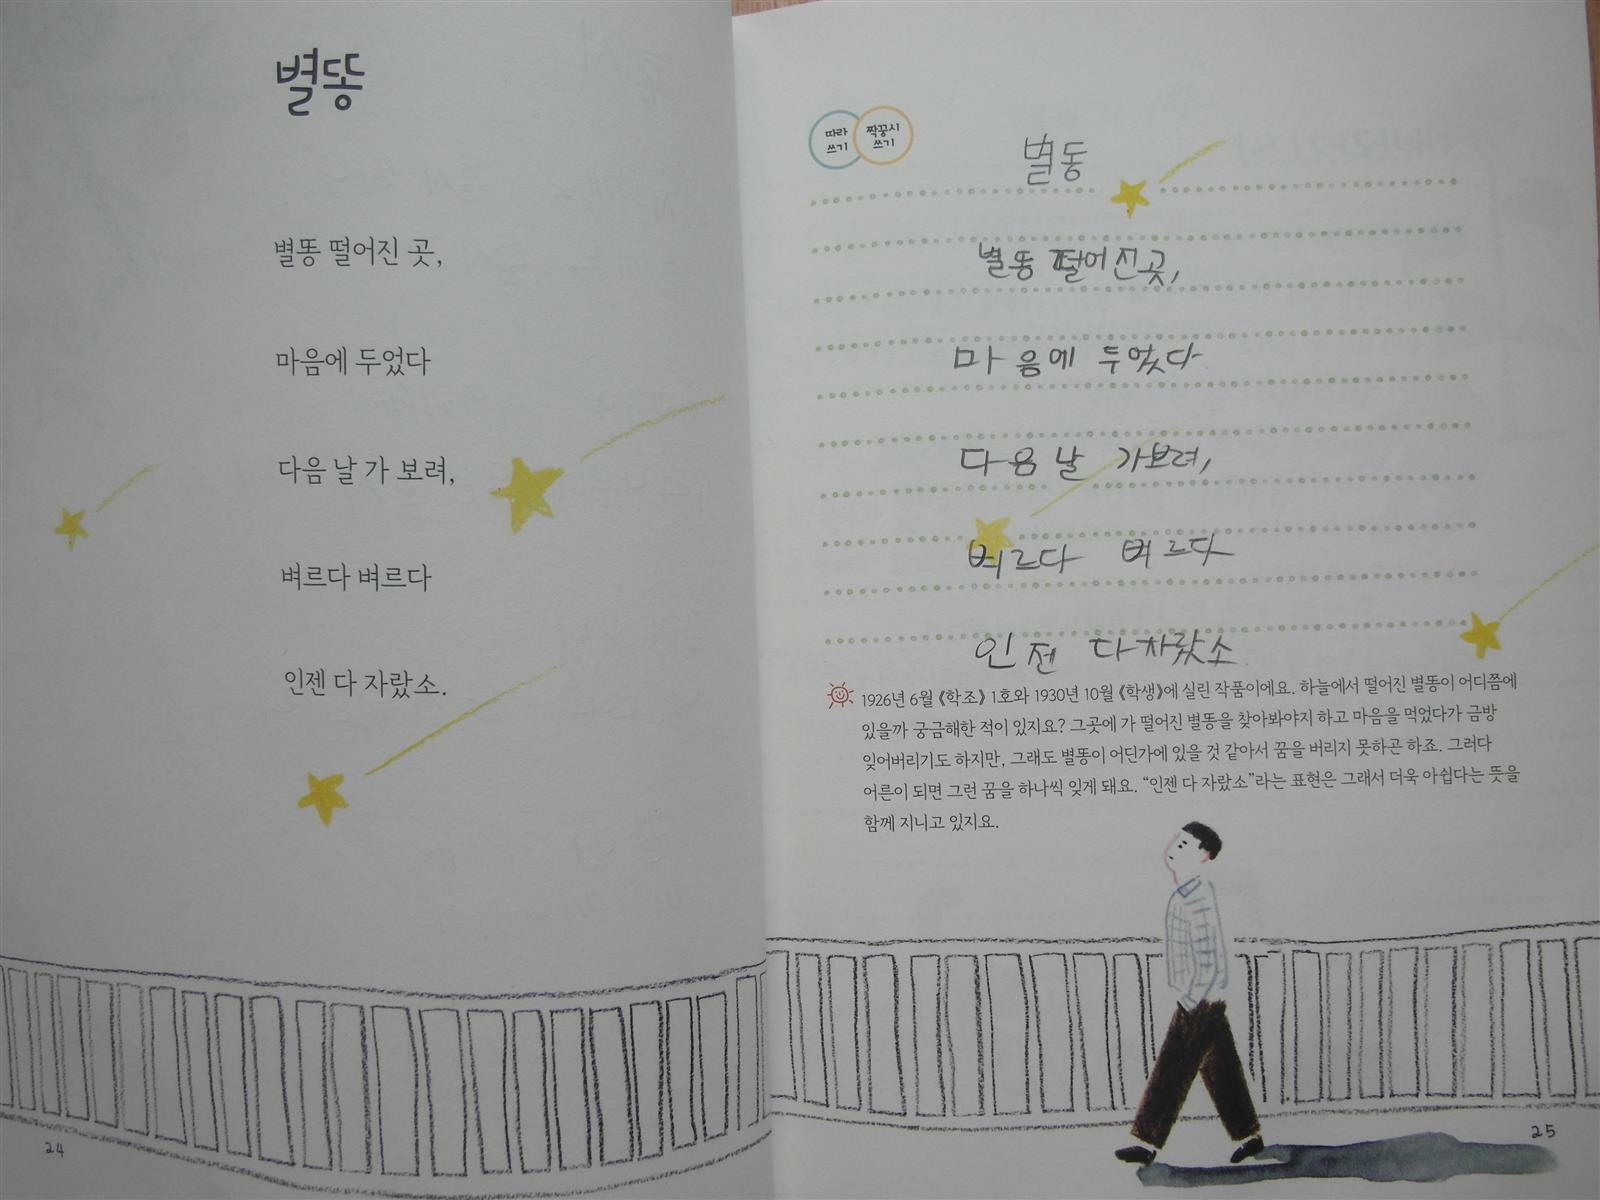 별똥
별똥 떨어진 곳,
마음에 두었다
다음 날 가 보려,
벼르다 벼르다
인젠 다 자랐소.
24
따라
쓰기
짝꿍시
쓰기
별동
별똥 떨어진곳,
마음에 두었다
다음날 가보려,
벼르다 벼르다
인젠 다자랐소
1926년 6월 《학조》 1호와 1930년 10월 《학생》에 실린 작품이에요. 하늘에서 떨어진 별똥이 어디쯤에
있을까 궁금해한 적이 있지요? 그곳에 가 떨어진 별똥을 찾아봐야지 하고 마음을 먹었다가 금방
잊어버리기도 하지만, 그래도 별똥이 어딘가에 있을 것 같아서 꿈을 버리지 못하곤 하죠. 그러다
어른이 되면 그런 꿈을 하나씩 잊게 돼요. “인젠 다 자랐소”라는 표현은 그래서 더욱 아쉽다는 뜻을
함께 지니고 있지요.
25